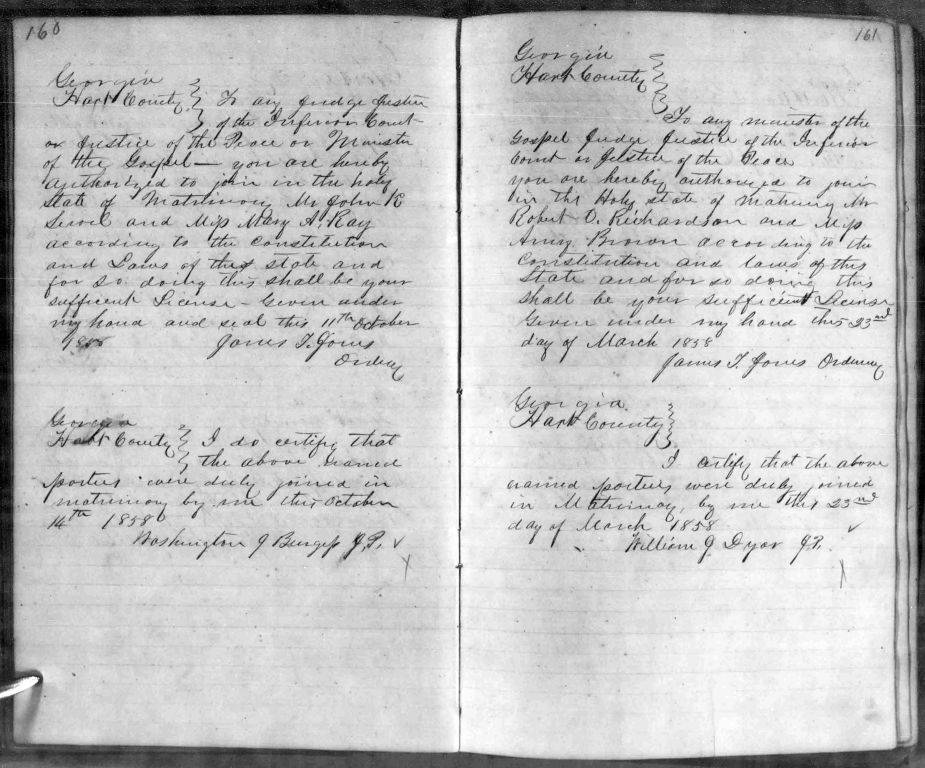 160
Georgia
Hart County } To any Judge Justice
of the Inferior Court
or Justice of the Peace or Minister
of the Gospel — you are hereby
authorized to join in the holy
State of Matrimony Mr John R
and Miss Mary A. Ray
according to the Constitution
and Laws of this state and
for so doing this shall be your
sufficient License — Given under
my hand and seal this 11th October
1858 James T. Jones
Ordinary
Georgia
Hart County } I do certify that
the above named
parties were duly joined in
matrimony by me this October
14th 1858
Washington J Burgess J.P.
161
Georgia
Hart County }
To any minister of the
Gospel Judge Justice of the Inferior
Court or Justice of the Peace
you are hereby authorized to join
in the Holy state of Mr
Robert Richardson and Miss
Brown according to the
Constitution and laws of this
State and for so doing this
shall be your sufficient License
Given under my hand this 23nd
day of March 1858
James T. Jones Ordinary
Georgia
Hart County }
I certify that the above
named parties were duly joined
in Matrimony by me this 23nd
day of March 1858
William J Dyar J.P.